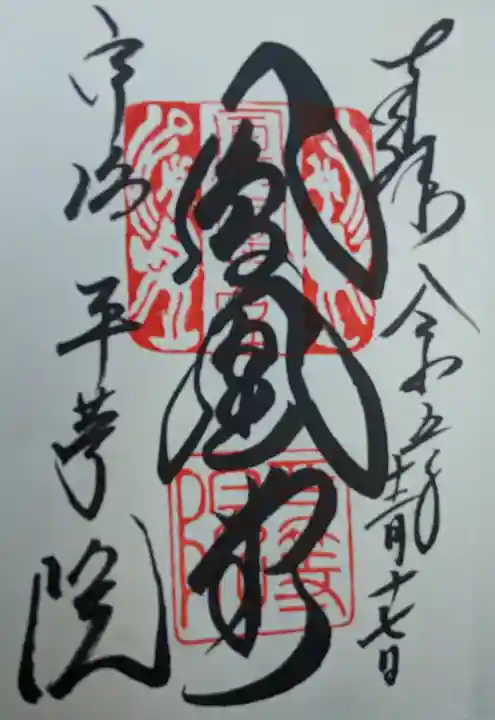 奉拝 令和五年十二月十七日
鳳凰堂
宇治 平等院